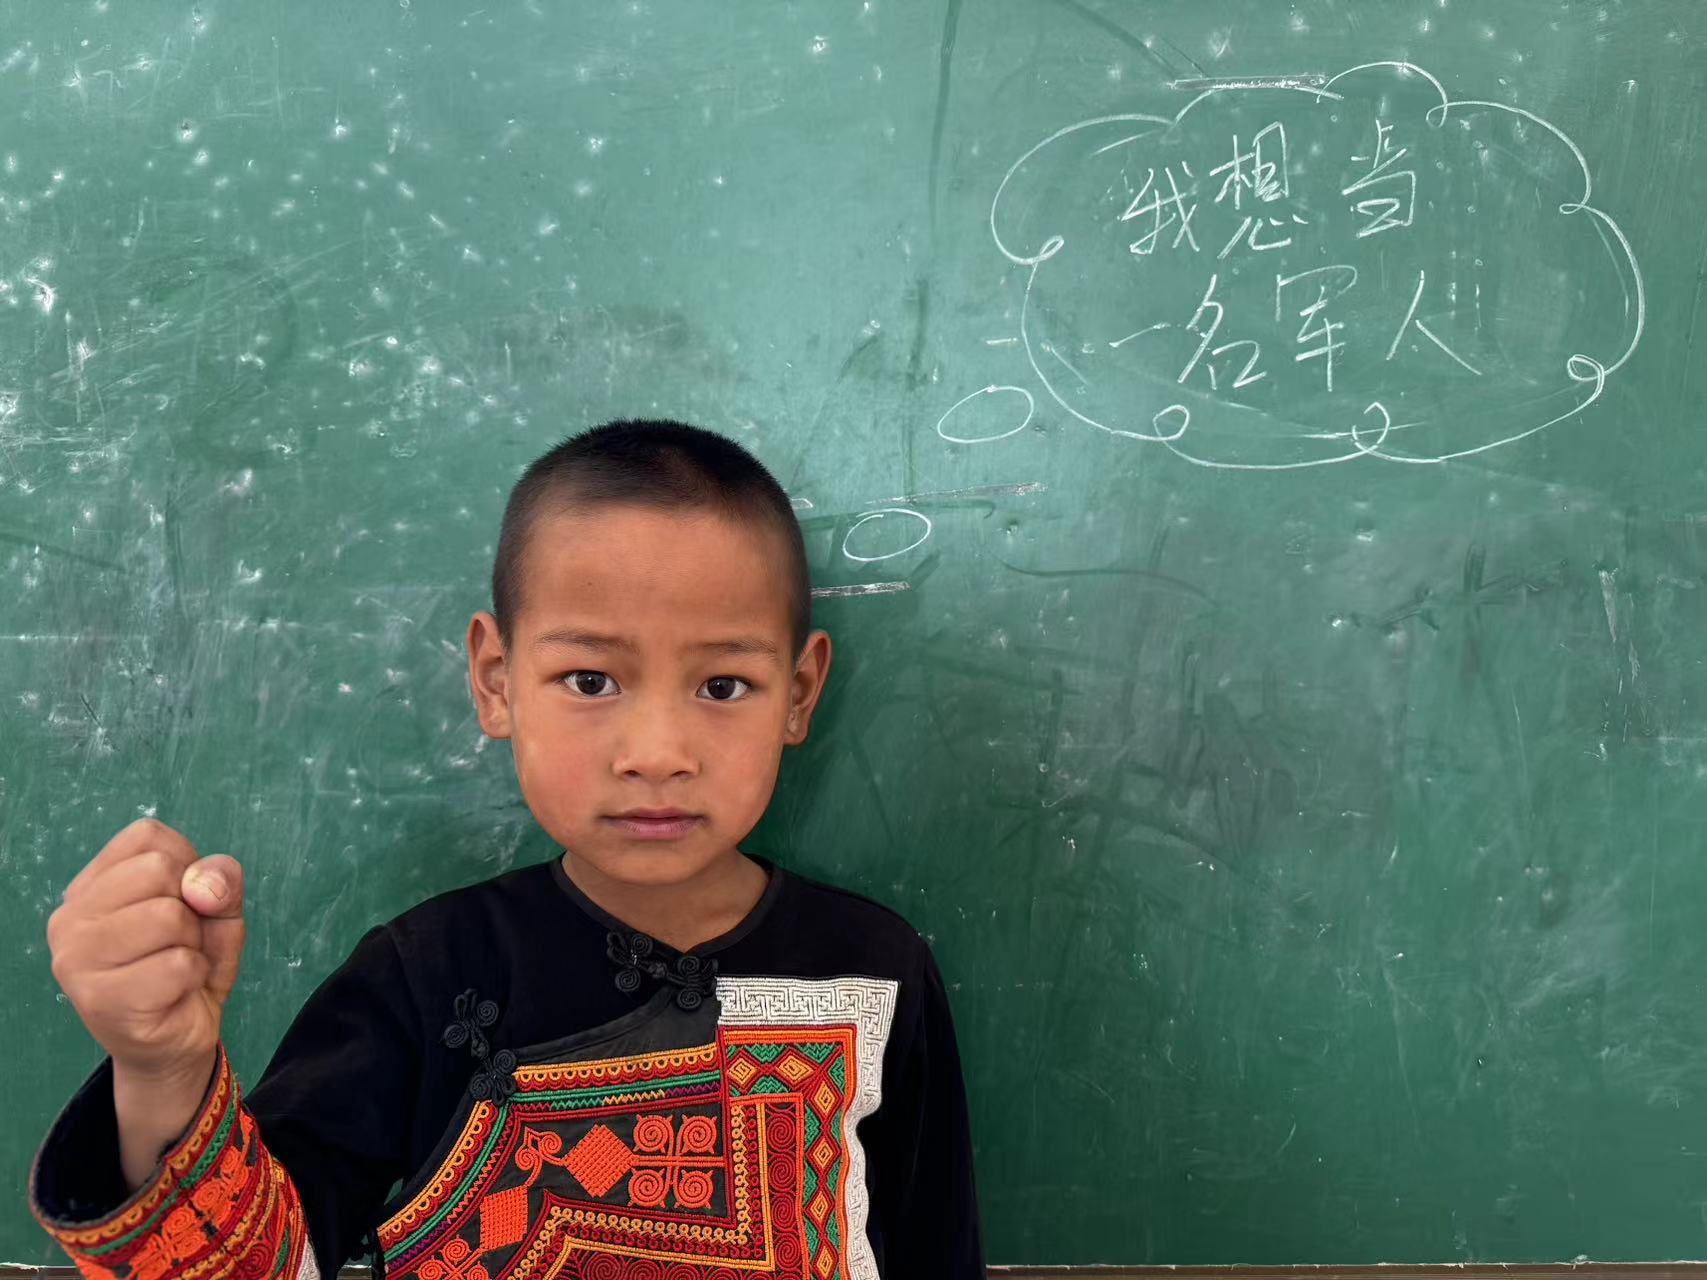 我想当
一名军人